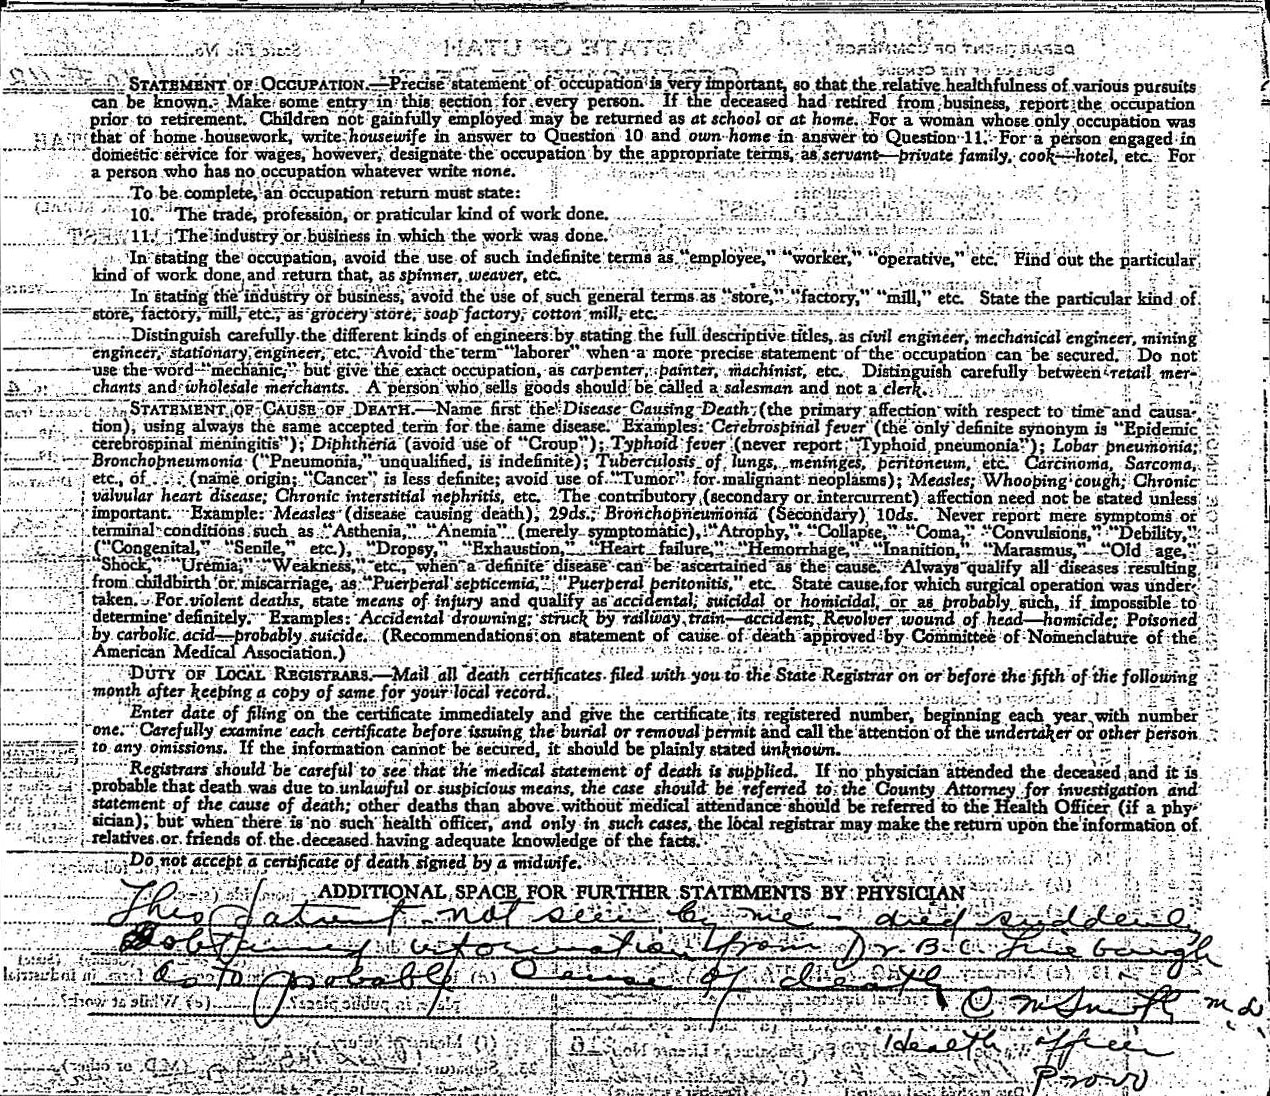 STATEMENT OF OCCUPATION.—Precise statement of occupation is very important, so that the relative healthfulness of various pursuits
can be known. Make some entry in this section for every person. If the deceased had retired from business, report the occupation
prior to retirement. Children not gainfully employed may be returned as at school or at home. For a woman whose only occupation was
that of home housework, write housewife in answer to Question 10 and own home in answer to Question 11. For a person engaged in
domestic service for wages, however, designate the occupation by the appropriate terms, as servant—private family, cook—hotel, etc. For
a person who has no occupation whatever write none.
To be complete, an occupation return must state:
10. The trade, profession, or praticular kind of work done.
11. The industry or business in which the work was done.
In stating the occupation, avoid the use of such indefinite terms as "employee," "worker," "operative," etc. Find out the particular
kind of work done and return that, as spinner, weaver, etc.
In stating the industry or business, avoid the use of such general terms as "store," "factory," "mill," etc. State the particular kind of
store, factory, mill, etc., as grocery store, soap factory, cotton mill, etc.
Distinguish carefully the different kinds of engineers by stating the full descriptive titles, as civil engineer, mechanical engineer, mining
engineer, stationary engineer, etc. Avoid the term "laborer" when a more precise statement of the occupation can be secured. Do not
use the word "mechanic," but give the exact occupation, as carpenter, painter, machinist, etc. Distinguish carefully between retail mer-
chants and wholesale merchants. A person who sells goods should be called a salesman and not a clerk.
STATEMENT OF CAUSE OF DEATH.—Name first the Disease Causing Death (the primary affection with respect to time and causa-
tion), using always the same accepted term for the same disease. Examples: Cerebrospinal fever (the only definite synonym is "Epidemic
cerebrospinal meningitis"); Diphtheria (avoid use of "Croup"); Typhoid fever (never report "Typhoid pneumonia"); Lobar pneumonia;
Bronchopneumonia ("Pneumonia," unqualified, is indefinite); Tuberculosis of lungs, meninges, peritoneum, etc. Carcinoma, Sarcoma,
etc., of . . . (name origin; "Cancer" is less definite; avoid use of "Tumor" for malignant neoplasms); Measles; Whooping cough; Chronic
valvular heart disease; Chronic interstitial nephritis, etc. The contributory (secondary or intercurrent) affection need not be stated unless
important. Example: Measles (disease causing death), 29ds.; Bronchopneumonia (Secondary) 10ds. Never report mere symptoms or
terminal conditions such as "Asthenia," "Anemia" (merely symptomatic), "Atrophy," "Collapse," "Coma," "Convulsions," "Debility,"
("Congenital," "Senile," etc.), "Dropsy," "Exhaustion," "Heart failure," "Hemorrhage," "Inanition," "Marasmus," "Old age,"
"Shock," "Uremia," "Weakness," etc., when a definite disease can be ascertained as the cause. Always qualify all diseases resulting
from childbirth or miscarriage, as "Puerperal septicemia," "Puerperal peritonitis," etc. State cause for which surgical operation was under
taken. For violent deaths, state means of injury and qualify as accidental, suicidal or homicidal, or as probably such, if impossible to
determine definitely. Examples: Accidental drowning; struck by railway train—accident; Revolver wound of head—homicide; Poisoned
by carbolic acid—probably suicide. (Recommendations on statement of cause of death approved by Committee of Nomenclature of the
American Medical Association.)
DUTY OF LOCAL REGISTRARS.—Mail all death certificates filed with you to the State Registrar on or before the fifth of the following
month after keeping a copy of same for your local record.
Enter date of filing on the certificate immediately and give the certificate its registered number, beginning each year with number
one. Carefully examine each certificate before issuing the burial or removal permit and call the attention of the undertaker or other person
to any omissions. If the information cannot be secured, it should be plainly stated unknown.
Registrars should be careful to see that the medical statement of death is supplied. If no physician attended the deceased and it is
probable that death was due to unlawful or suspicious means, the case should be referred to the County Attorney for investigation and
statement of the cause of death; other deaths than above without medical attendance should be referred to the Health Officer (if a phy-
sician); but when there is no such health officer, and only in such cases, the local registrar may make the return upon the information of
relatives or friends of the deceased having adequate knowledge of the facts.
Do not accept a certificate of death signed by a midwife.
ADDITIONAL SPACE FOR FURTHER STATEMENTS BY PHYSICIAN
This patient not seen by me - died suddenly
Obtained information from Dr. B. C.
as to probable Cause of death
C M Smith M.D.
Health officer
Provo